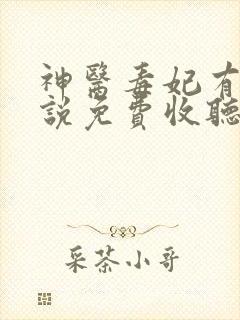 神醫毒妃有
説免費收聽
采茶小哥